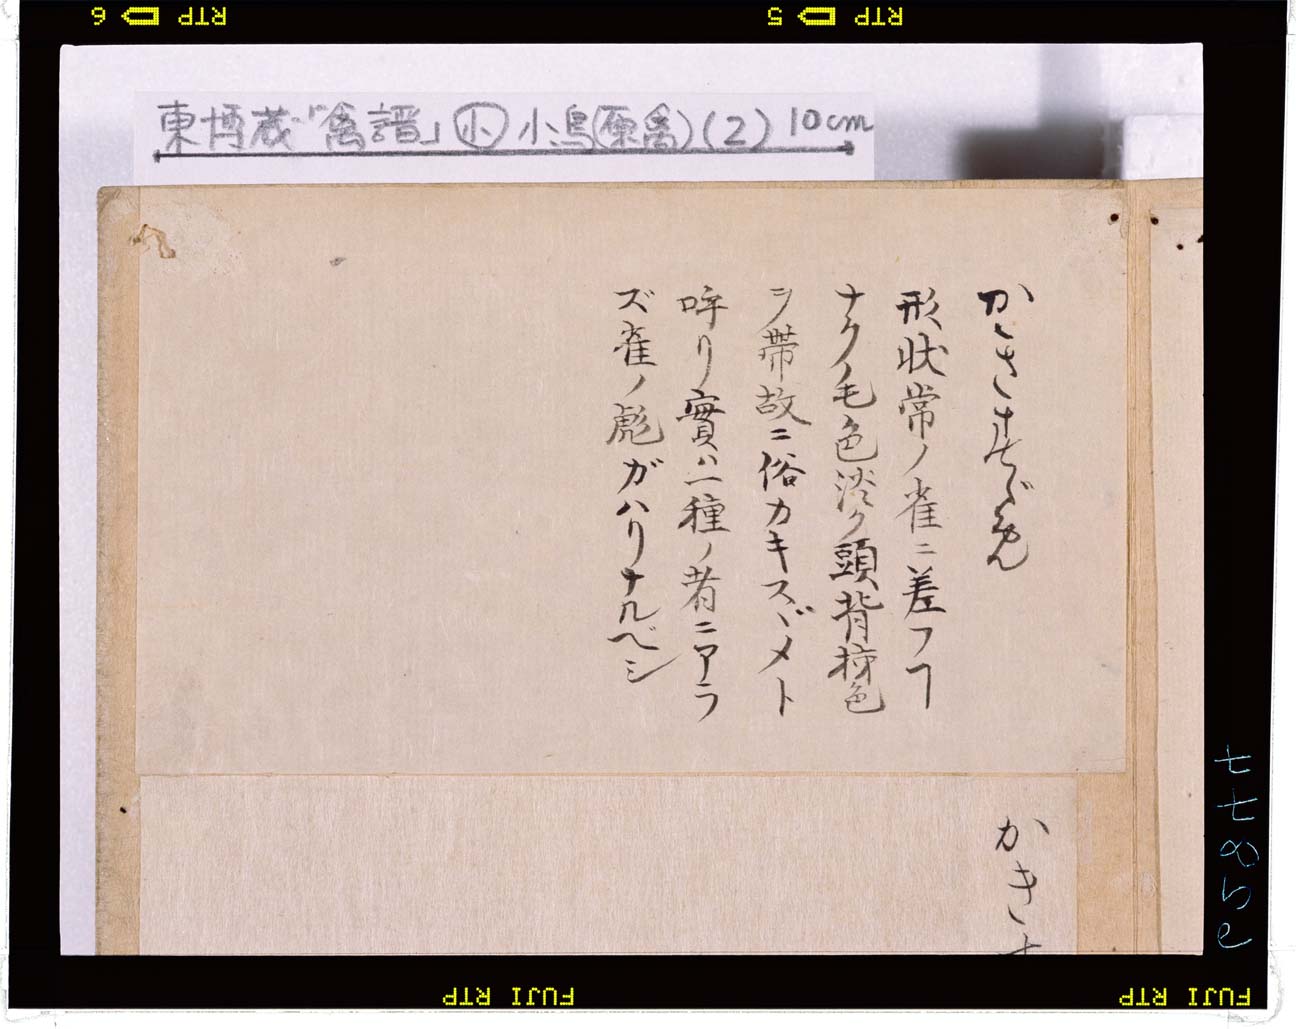 東博蔵『禽譜』㊙小鳥(原禽)(2) 10cm
かきすゞめ
形状常ノ雀ニ差フヿ
ナクノ毛色淡ク頭背柹色
ヲ帯故ニ俗カキスヾメト
呼リ實ハ一種ノ者ニアラ
ズ雀ノ彪ガハリナルベシ
かきす
RTP 6
RTP 5
FUJI RTP
FUJI RTP